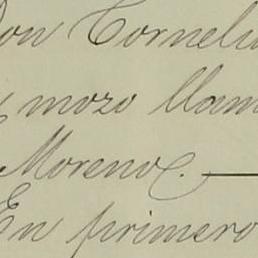 Don Cornelio
mozo llam
Moreno.
En primero